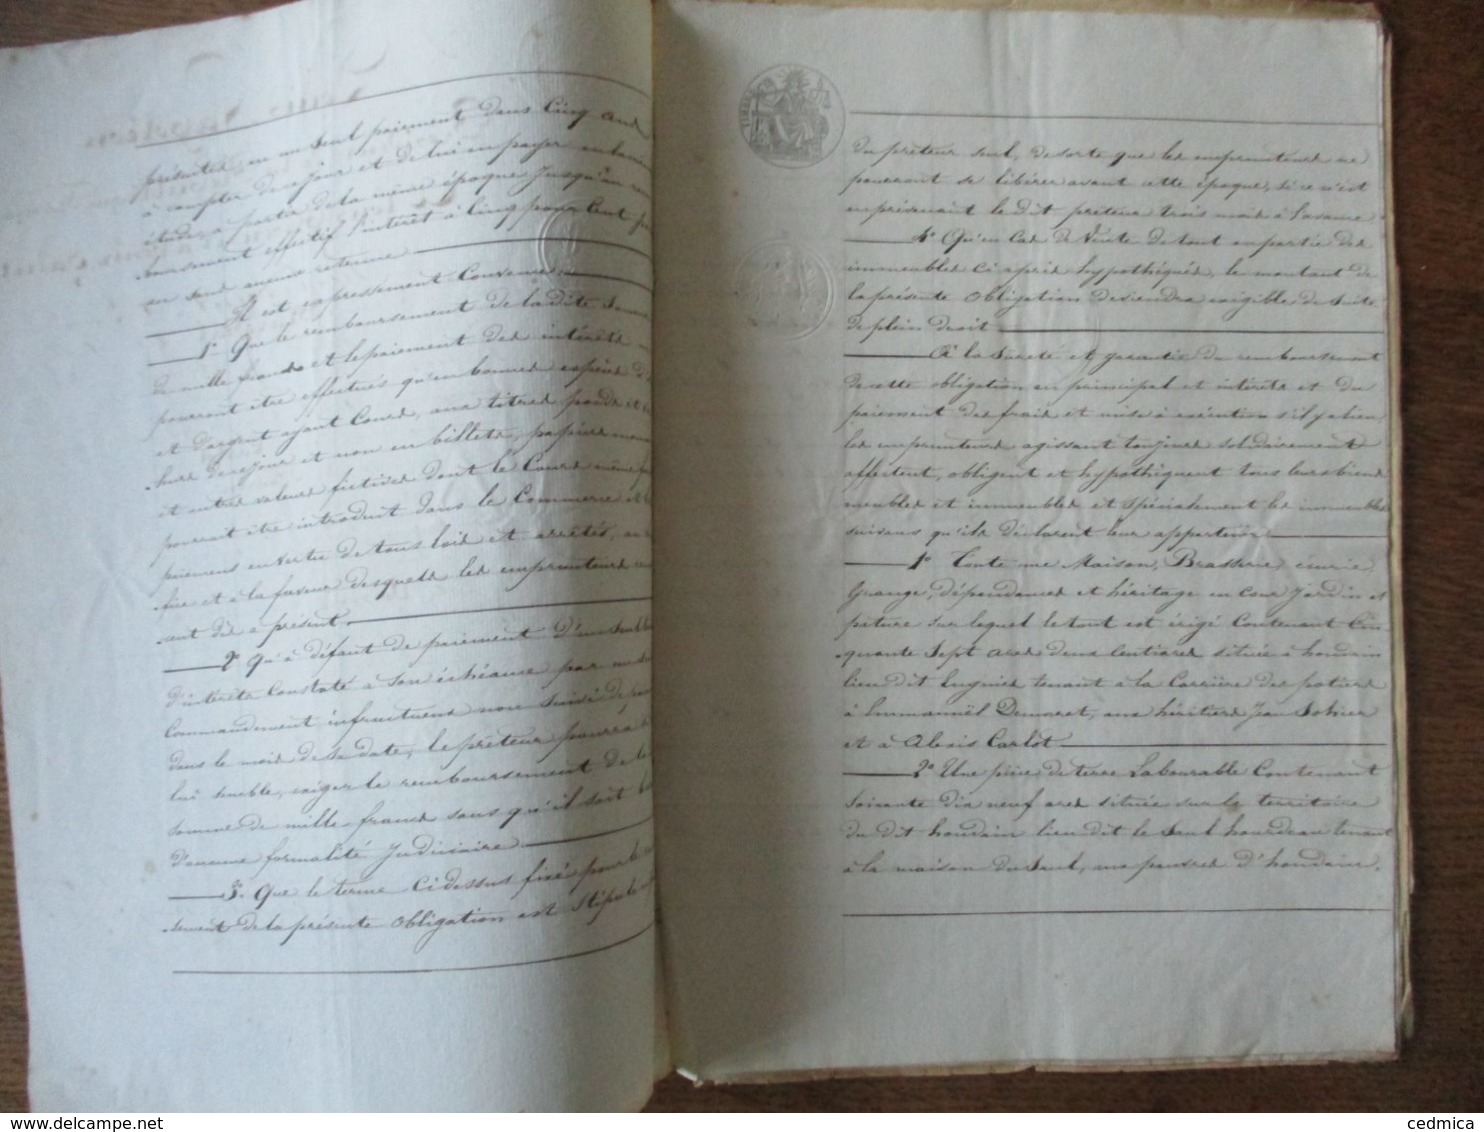 présentée en un seul paiement, dans Cinq ans
à compter de ce jour et de lui en payer
à partir de la même époque jusqu'au rem
boursement effectif l'intérêt à Cinq pour Cent
an sans aucune retenue
Il est expressement Convenu
1° Que le remboursement de la dite Somme
de mille francs et le paiement des intérêts ne
pourront être effectués qu'en bonnes espèces d'
et d'argent ayant Cours, aux titres poids et
de ce jour et non en billets, papiers mon
et autres valeurs fictives dont le Cours même for
pourrait être introduit dans le Commerce et
en vertu de tous lois et arrêtés, au
et à la faveur desquels les emprunteurs
dès à présent.
2° Qu'à défaut de paiement d'un seul
d'intérêts Constaté à son échéance par un
Commandement infructueux non suivi de
dans le mois de sa date, le prêteur pourra
lui semble, exiger le remboursement de la
somme de mille francs sans qu'il soit
d'aucune formalité Judiciaire.
3° Que le terme Ci dessus fixé pour le
sement de la présente obligation est Stipulé
TIMBRE
du prêteur seul, de sorte que les emprunteurs ne
pourront se libérer avant cette époque, si ce n'est
en prévenant le dit prêteur trois mois à l'avance
4° Qu'en Cas de Vente de tout ou partie des
immeubles ci après hypothéqués, le montant de
la présente Obligation deviendra exigible de Suite
de plein droit
À la Sureté et garantie du remboursement
de cette obligation en principal et intérêts et du
paiement des frais et mise à exécution s'il y a lieu
les emprunteurs agissant toujours solidairement
affectent, obligent et hypothèquent tous leurs biens
meubles et immeubles et spécialement les immeubles
suivans qu'ils déclarent leur appartenir
1° Toute une Maison, Brasserie, écurie,
Grange, dépendances et héritage en cour Jardin et
pature sur lequel le tout est érigé Contenant Cin-
quante Sept ares deux Centiares située à houdain
lieu dit tenant à la Carrière des potiers
à Emmanuël Demoret, aux héritiers Jean
et à Alexis Carlot
2° Une pièce de terre Labourable Contenant
Soixante dix neuf ares située sur le territoire
du dit houdain lieu dit le Saul hourdeau tenant
à la maison du Saul, aux pauvres d'houdain,
cedmica